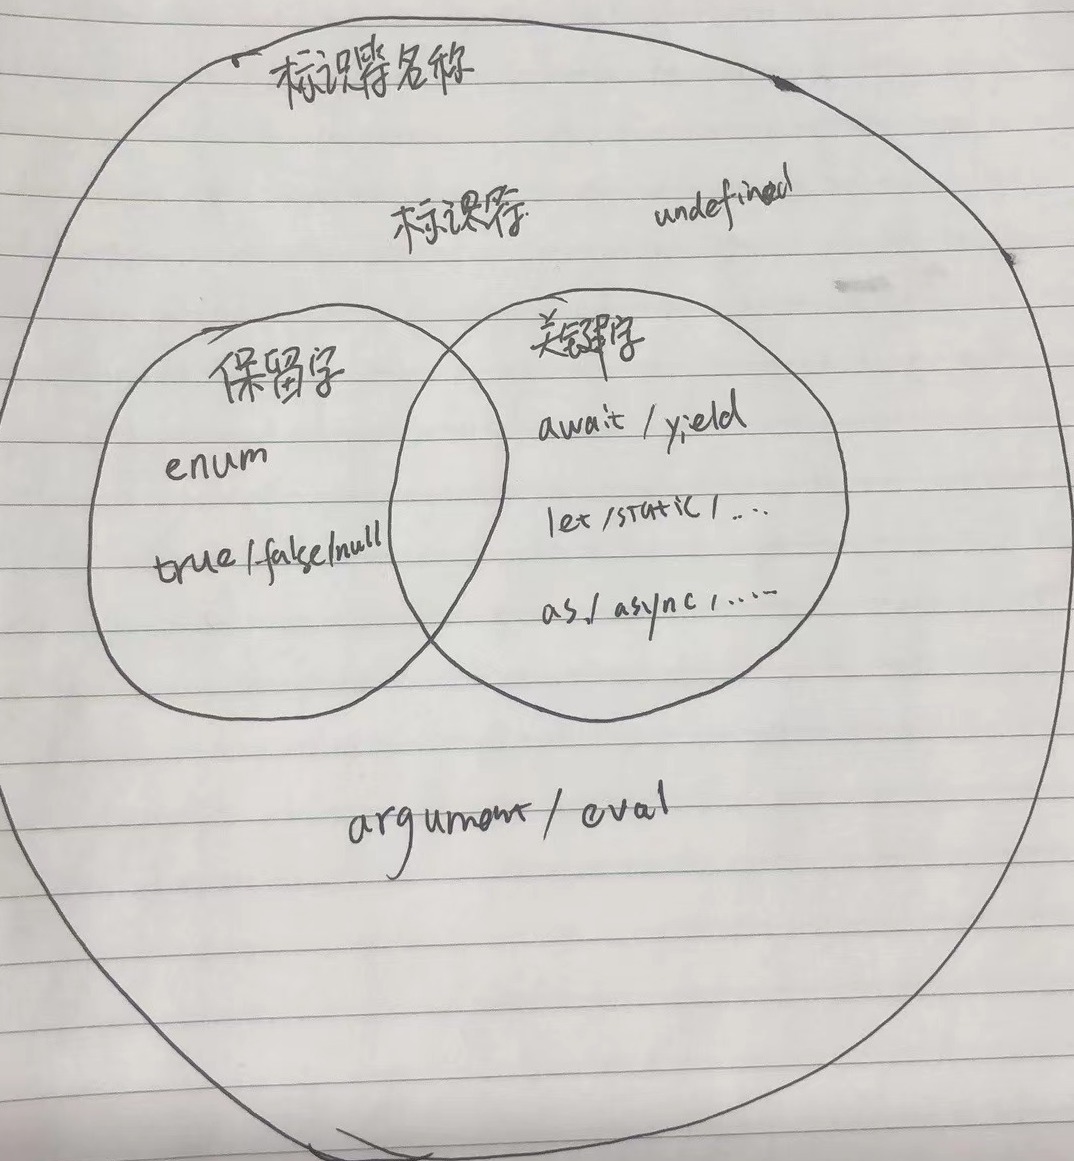 标识符名称
标识符 undefined
保留字
enum
true/false/null
关键字
await / yield
let /static / ....
as / async / .....
argument / eval